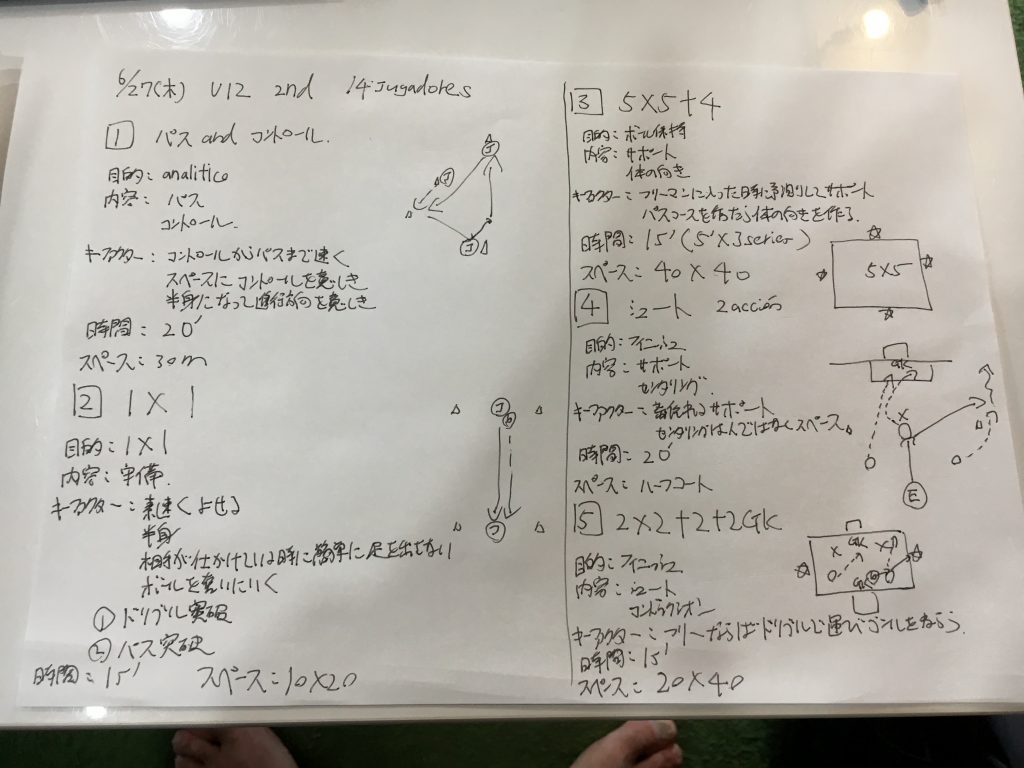 6/27(木) U12 2nd 14 Jugadores
1 パス and コントロール.
目的: analitico
内容: パス
コントロール.
キーファクター: コントロールからパスまで速く
スペースにコントロールを意しき
半身になって進行方向を意しき
時間: 20'
スペース: 30m
2 1×1
目的: 1×1
内容: 守備.
キーファクター: 素速くよせる
半身
相手が仕かけていない時に簡単に足を出さない
ボールを奪いにいく
① ドリブル突破
② パス突破
時間: 15' スペース: 10×20
3 5×5+4
目的: ボール保持
内容: サポート
体の向き
キーファクター: フリーマンに入った時に予測りしてサポート
パスコースを作ったら体の向きを作る.
時間: 15' (5'×3series)
スペース: 40×40
5×5
4 シュート 2 acción
目的: フィニッシュ
内容: サポート
センタリング.
キーファクター: サポート
センタリングは人ではなくスペース。
時間: 20'
スペース: ハーフコート
GK
E
5 2×2+2+2GK
目的: フィニッシュ
内容: シュート
コントラクシオン
キーファクター: フリーならばドリブルで運びゴールをねらう.
時間: 15'
スペース: 20×40
GK